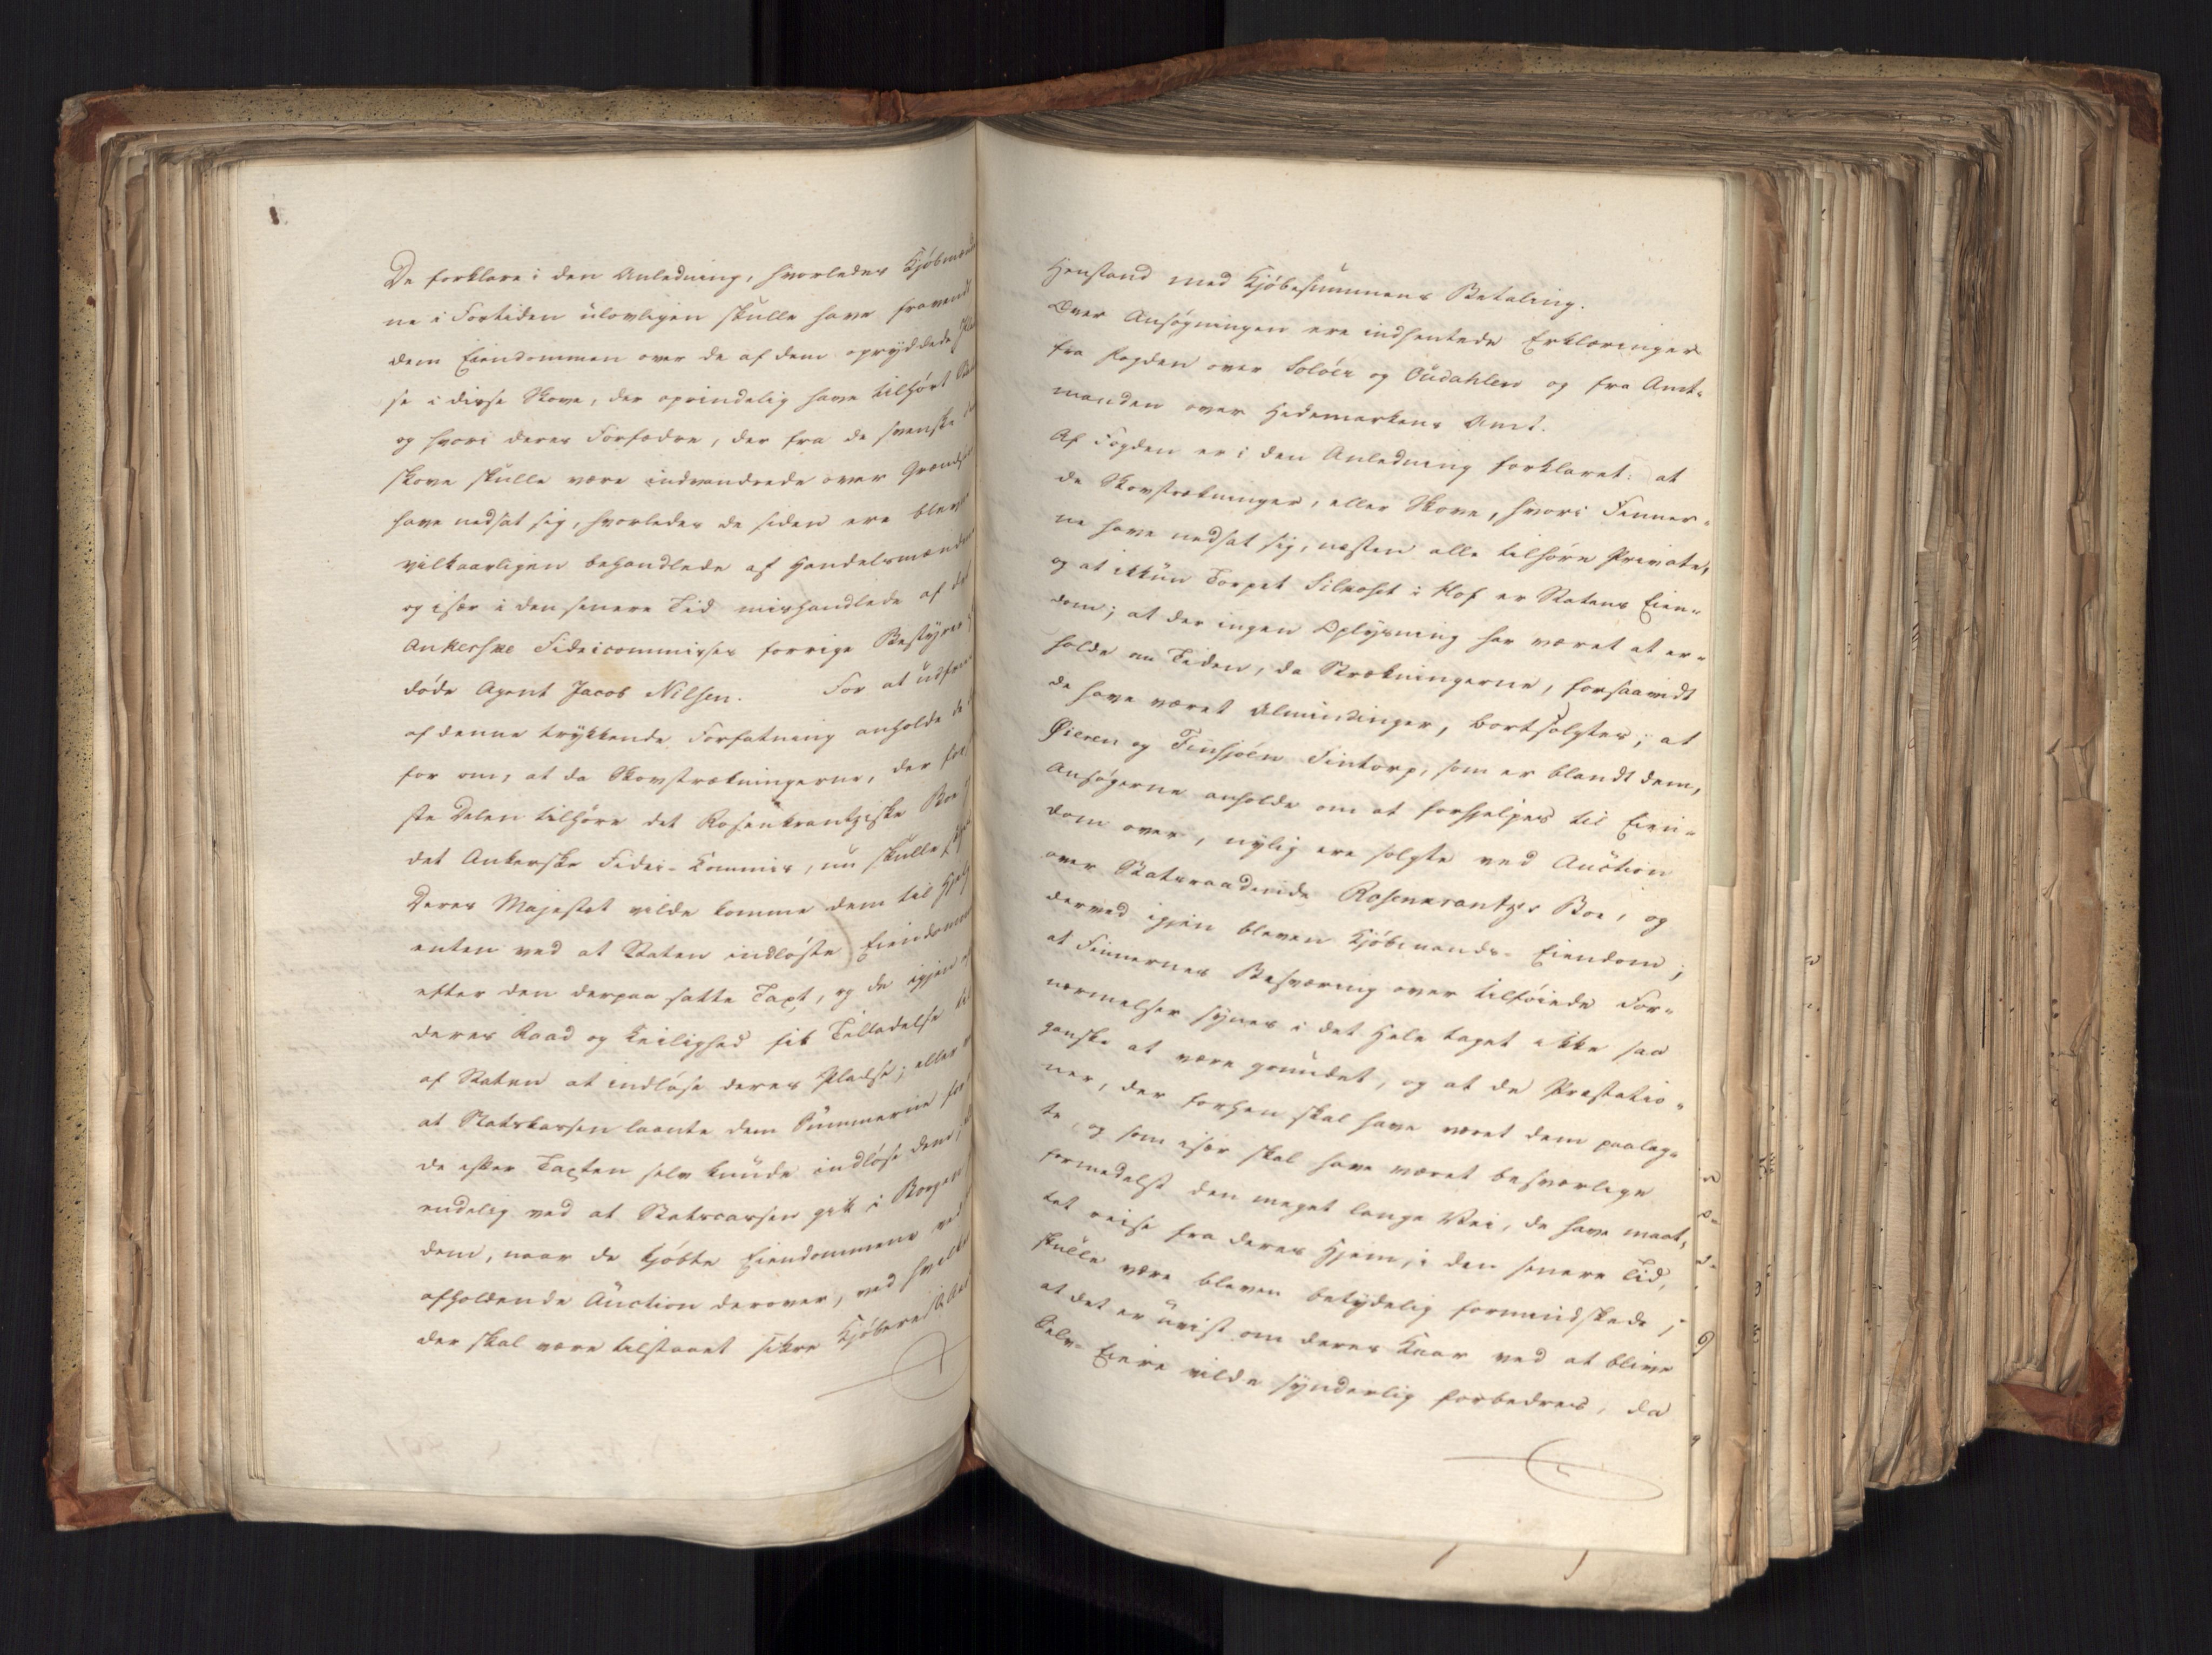 De forklare i den Anledning, hvorledes Kjøbmænd
ne i Fortiden ulovligen skulle have fravendt
dem Eiendommen over de af dem opryddede
se i disse Skove, der oprindelig have tilhørt
og hvori deres Forfædre, der fra de svenske
skove skulle være indvandrede over Grændsen
have nedsat sig, hvorledes de siden ere blevne
vilkaarligen behandlede af Handelsmændene
og især i den senere Tid mishandlede af det
Ankerske Fideicommisses forrige Bestyrer
døde Agent Jacob Nilsen. For at udfries
af denne trykkende Forfatning anholde de
for om, at da Skovstrækningerne, der for
ste Delen tilhøre det Rosenkrantziske Boe
det Ankerske Fidei-Commis, nu skulle
Deres Majestet vilde komme dem til Hjelp
enten ved at Staten indløste Eiendommene
efter den derpaa satte Taxt, og de igjen
deres Raad og Leilighed fik Tilladelse til
af Staten at indløse deres Pladse; eller
at Statskassen laante dem Summerne for
de efter Taxten selv kunde indløse dem;
endelig ved at Statscassen gik i Borgen
dem, naar de kjøbte Eiendommene ved
afholdende Auction derover, ved hvilken
der skal være tilstaaet sikre Kjøbere
Henstand med Kjøbesummens Betaling.
Over Ansøgningen ere indhentede Erklæringer
fra Fogden over Soløer og Oudahlen og fra Amt-
manden over Hedemarkens Amt.
Af Fogden er i den Anledning forklaret: at
de Skovstrækninger, eller Skove, hvori Finner-
ne have nedsat sig, næsten alle tilhøre Private,
og at ikkun Torpet Silkoset i Hof er Statens Eien-
dom; at der ingen Oplysning har været at er-
holde om Tiden, da Strækningerne, forsaavidt
de have været Almindinger, bortsolgtes; at
Øieren og Finsjoen Fintorp, som er blandt dem,
Ansøgerne anholde om at forhjelpes til Eien-
dom over, nylig ere solgte ved Auction
over Statsraadinde Rosenkrantzes Boe, og
derved igjen bleven Kjøbmands-Eiendom;
at Finnernes Besværing over tilføiede For-
nærmelser synes i det Hele taget ikke saa
ganske at være grundet, og at de Præstatio-
ner, der forhen skal have været dem paalag-
te, og som især skal have været besværlige
formedelst den meget lange Vei, de have maat-
tet reise fra deres Hjem, i den senere Tid,
skulle være bleven betydelig formindskede;
at det er uvist om deres Kaar ved at blive
Selv-Eiere vilde synderlig forbedres, da